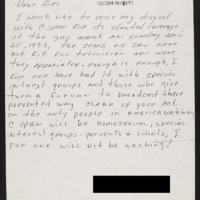 Dear Sirs
I would like to voice my disgust
with C span for its slanted coverage
of the gay march on Sunday April
25, 1993, the scenes we saw were
not fit for television nor were
they appreciated. enough is enough, I
for one have had it with special
interest groups and those who give
them a forum to broadcast there
perverted way clean up your act,
or the only people in america watching
C span will be homosexual, special
interest groups - perverts + idiots, I
for one will not be watching!